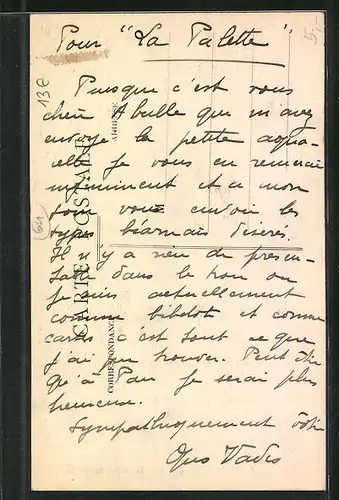 Pour "La Palette"
Puisque c'est vous
cher Abulle que m'avez
envoyé la petite aqua-
elle je vous en remercie
infiniment et a mon
tour vous envoie les
types béarnais désirés.
Il n'y a rien de présen-
table dans le trou ou
je suis actuellement
comme bibelot et comme
cartes c'est tout ce que
j'ai pu trouver. Peut être
qu'à Pau je serai plus
heureuse.
Sympathiquement vôtre
Quo Vadis
CARTE POSTALE
CORRESPONDANCE
ADRESSE
13e
64